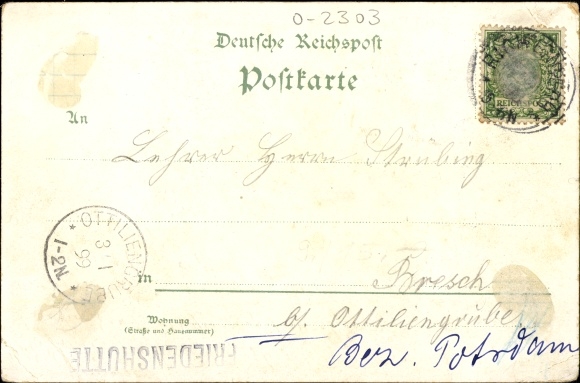 0-2303
Deutsche Reichspost
Postkarte
REICHSPOST
An
Lehrer Herrn Strübing
OTTILIENGRUBE
3-1
99
* N 1-2 *
in Bresch
b/ Ottiliengrube
Wohnung
(Straße und Hausnummer)
Bez. Potsdam
FRIEDENSHÜTTE